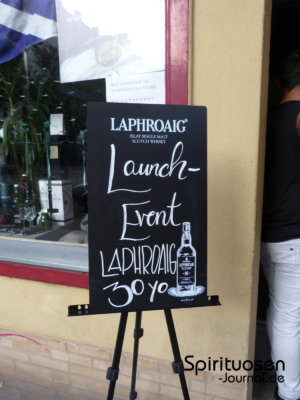 LAPHROAIG®
ISLAY SINGLE MALT
SCOTCH WHISKY
Launch-
Event
LAPHROAIG
30 YO
LAPHROAIG
Spirituosen
-Journal.de